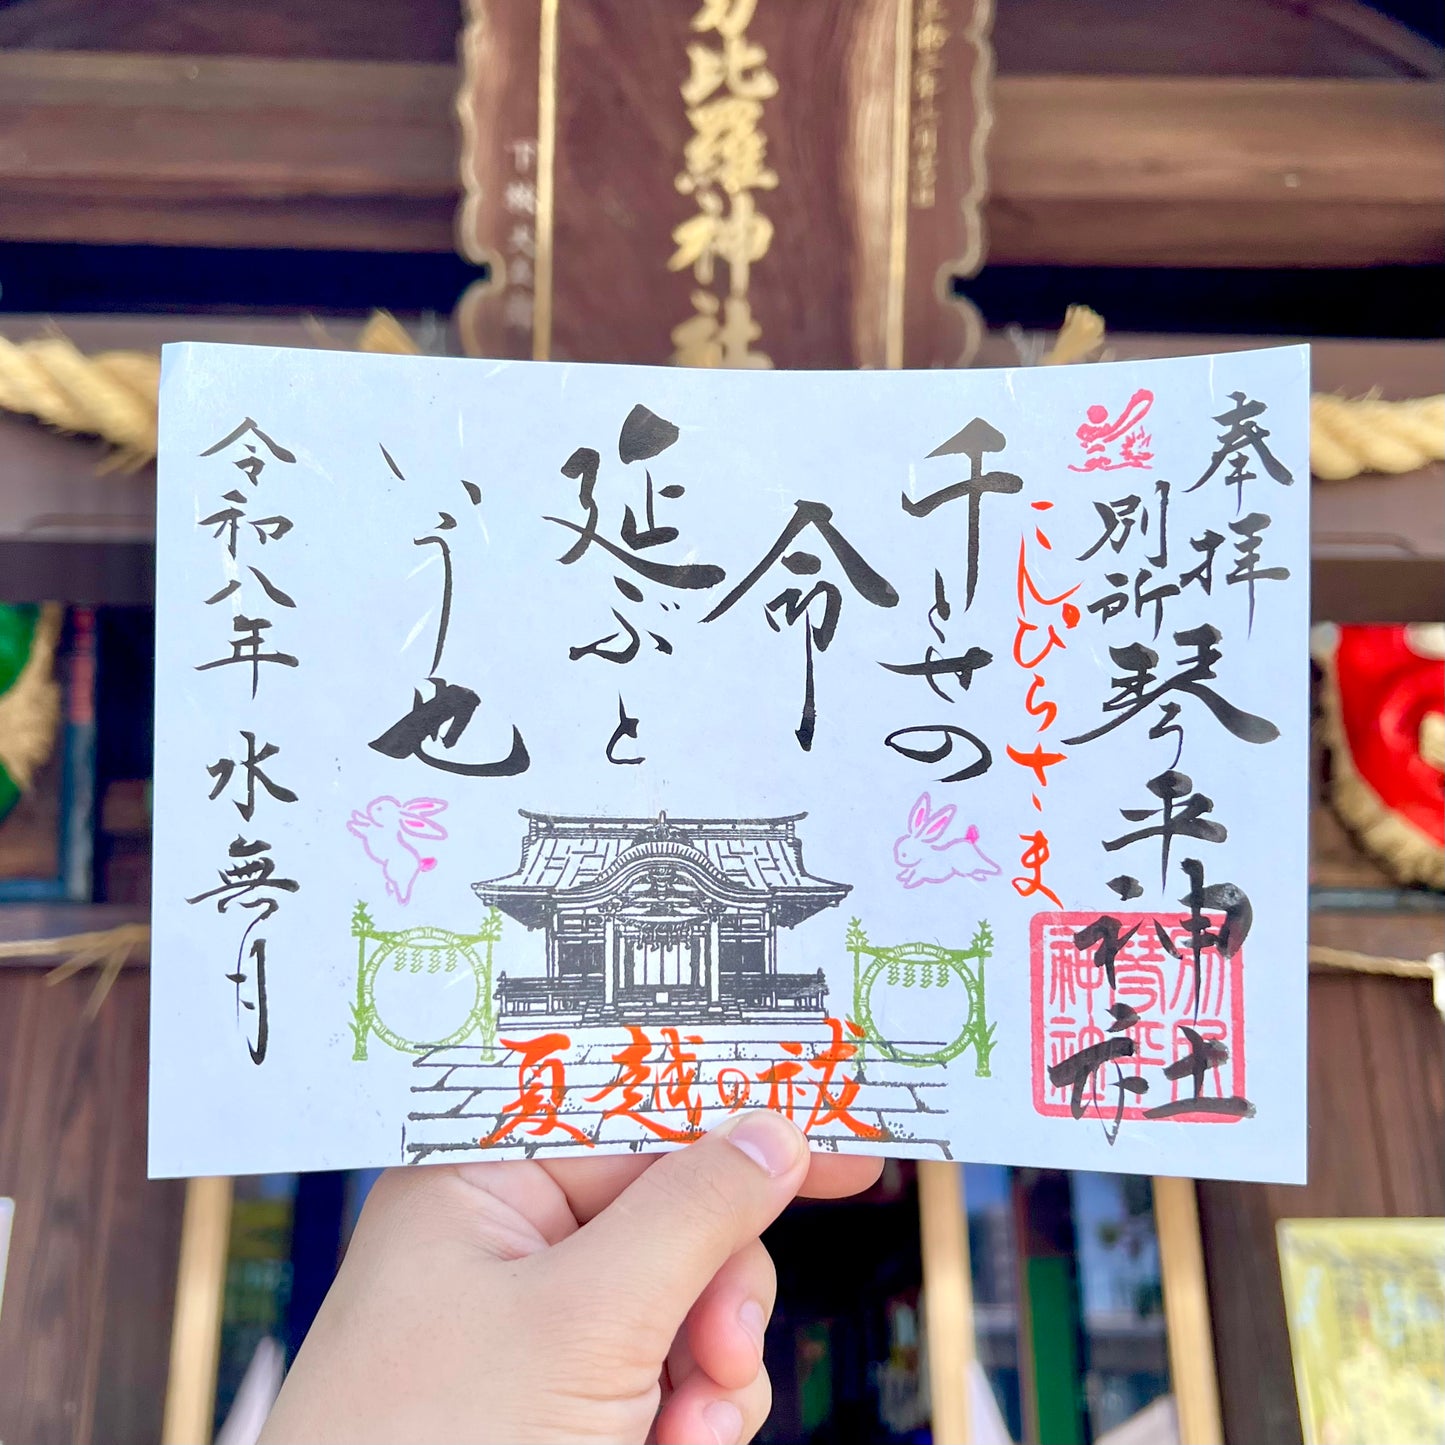 比羅神社
奉拝
別所琴平神社
こんぴらさま
千とせの
命
延ぶと
いう也
令和八年水無月
夏越の祓